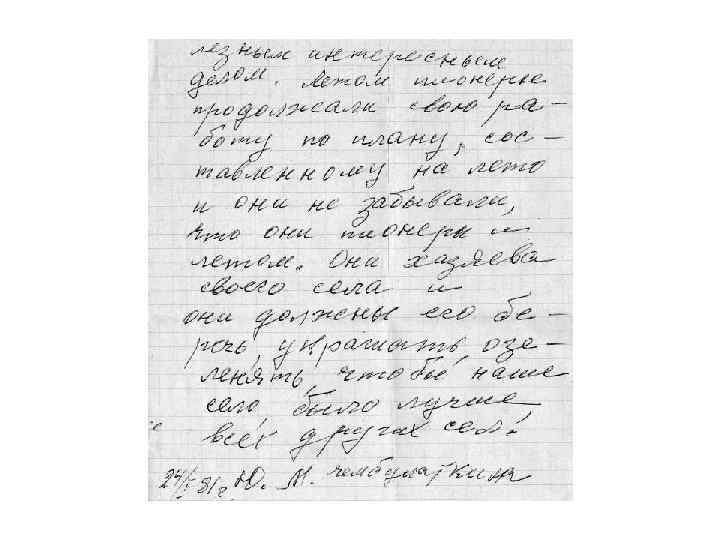 лезным интересным
делом. Летом пионеры
продолжали свою ра-
боту по плану, сос-
тавленному на лето
и они не забывали,
что они пионеры и
летом. Они хазяева
своего села и
они должны его бе-
речь, украшать, озе-
ленять, чтобы наше
село было лучше
всех других сел.
Ю. М. Чембулаткина